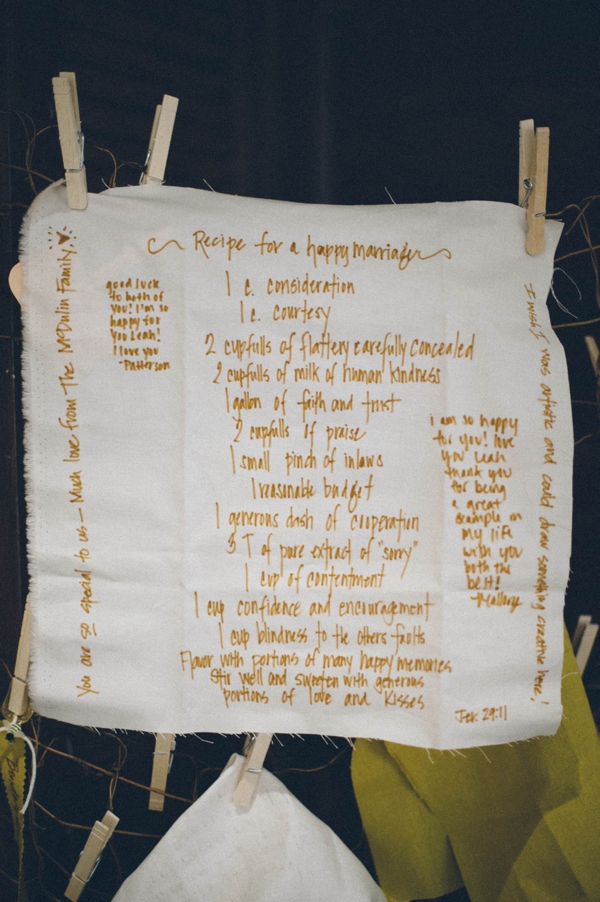 Recipe for a happy marriage
1 c. consideration
1 c. courtesy
2 cupfulls of flattery carefully concealed
2 cupfulls of milk of human kindness
1 gallon of faith and trust
2 cupfulls of praise
1 small pinch of inlaws
1 reasonable budget
1 generous dash of cooperation
3 T of pure extract of "sorry"
1 cup of contentment
1 cup confidence and encouragement
1 cup blindness to the others faults
Flavor with portions of many happy memories
Stir well and sweeten with generous
portions of love and kisses
Jer. 29:11
good luck
to both of
you! I'm so
happy for
you Leah!
I love you
-Patterson
You are so special to us - Much love from The McDulin Family
i am so happy
for you! love
you Leah
thank you
for being
a great
example in
my life
wish you
both the
best!
-Mallory
I wish I was artistic and could draw something creative here!